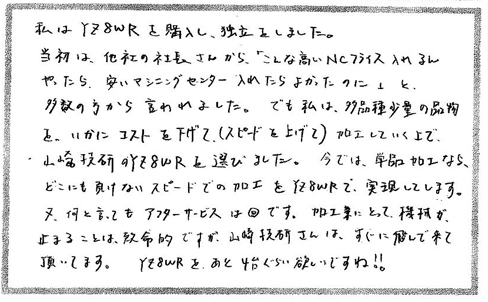 私はYZ8WRを購入し、独立をしました。
当初は、他社の社長さんから、「こんな高いNCフライス入れるん
やったら、安いマシニングセンター入れたらよかったのに」と、
多数の方から言われました。でも私は、多品種少量の品物
を、いかにコストを下げて、(スピードを上げて)加工していく上で、
山崎技研のYZ8WRを選びました。今では、単品加工なら、
どこにも負けないスピードでの加工をYZ8WRで、実現してします。
又、何と言ってもアフターサービスは◎です。加工業にとって、機械が、
止まることは、致命的ですが、山崎技研さんは、すぐに飛んで来て
頂いてます。 YZ8WRを、あと4台ぐらい欲しいですね!!